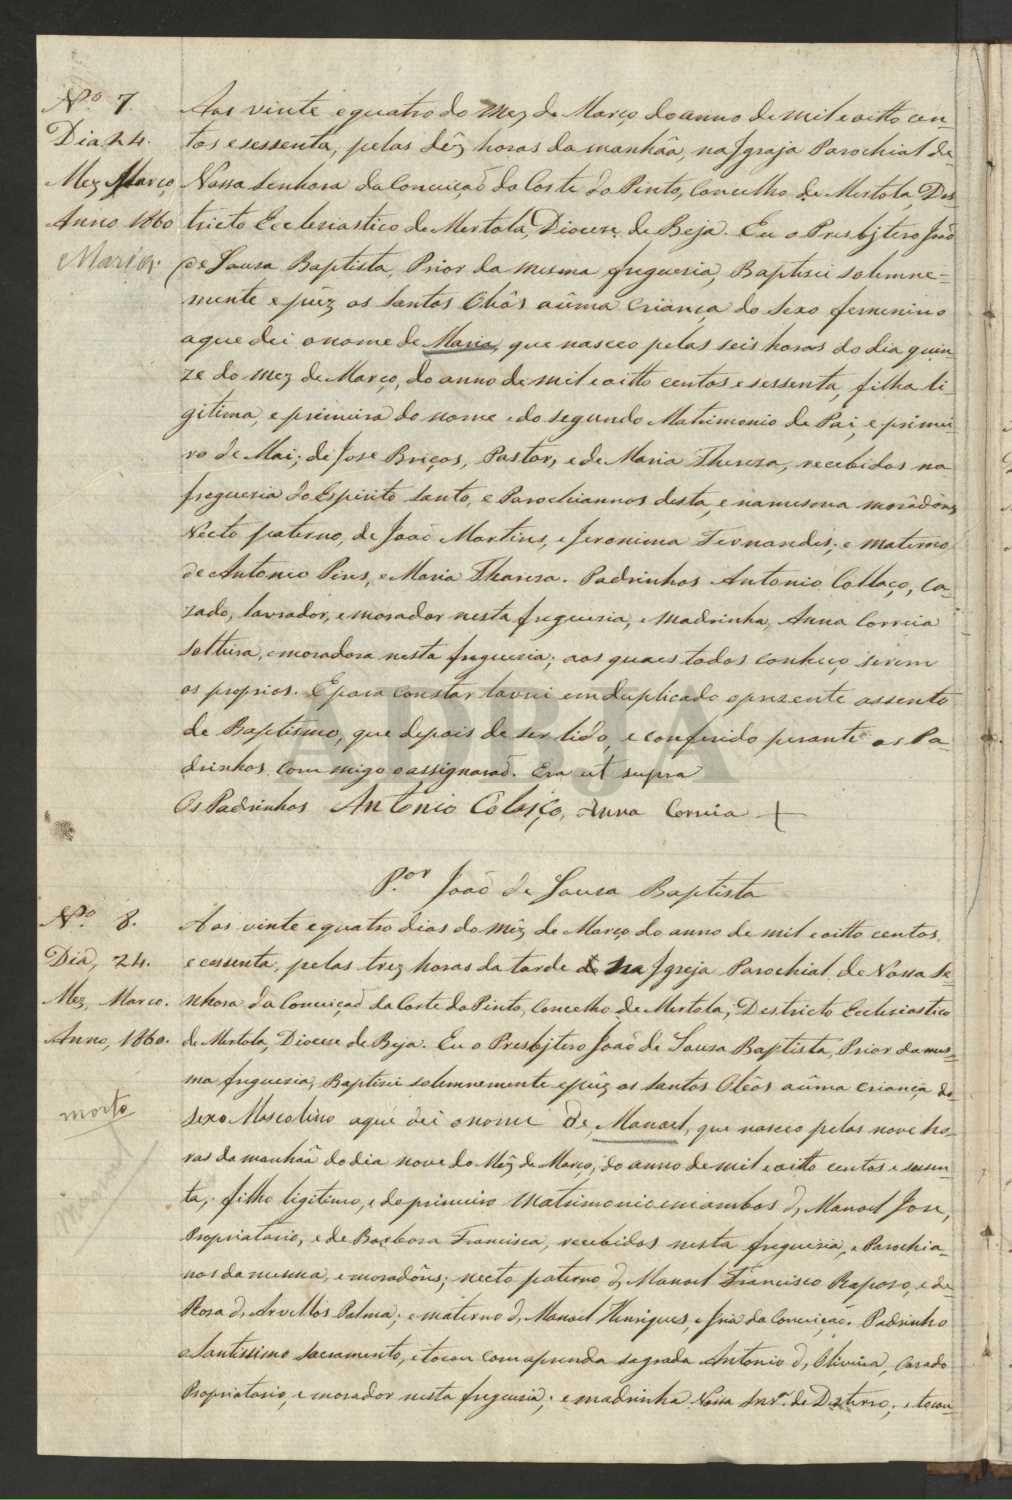 Nº 7.
Dia, 24.
Mez, Março,
Anno 1860
Maria.
Aos vinte e quatro do Mez de Março do anno de mil e oitto cen-
tos e sessenta, pelas dêz horas da manhãa, na Igreja Parochial de
Nossa Senhora da Conceição da Corte do Pinto, Concelho de Mertola, Des-
tricto Ecclesiastico de Mertola, Diocese de Beja. Eu o Presbjtero João
de Sousa Baptista, Prior da mesma freguesia, Baptisei solemne-
mente e pûz os Santos Olêos aûma criança do sexo femenino
aque dei o nome de Maria, que nasceo pelas seis horas do dia quin-
ze do mez de Março, do anno de mil e oitto centos e sessenta, filha li-
gitima, e primeira do nome e do segundo Matrimonio de Pai, e primei-
ro de Mai; de Jose Briços, Pastor, e de Maria Thereza, recebidos na
freguesia do Espirito Santo, e Parochiannos desta, e na mesma moradôres
Necto paterno, de João Martins, e Jeronima Fernandes; e materno
de Antonio Pires, e Maria Thareza. Padrinhos Antonio Collaço, Ca-
zado, lavrador, e morador nesta freguesia, e Madrinha, Anna Correia
solteira, e moradora nesta freguesia; aos quaes todos conheço serem
os proprios. E para constar lavrei em duplicado o prezente assento
de Baptismo, que depois de ser lido, e conferido perante os Pa-
drinhos, com migo o assignaraõ. Era ut supra
Os Padrinhos Antonio Colaço, Anna Correia +
P.or João de Sousa Baptista
Nº 8.
Dia, 24.
Mez, Março.
Anno, 1860.
morto
Manoel
Aos vinte e quatro dias do mêz de Março do anno de mil e oitto centos
e cessenta, pelas trez horas da tarde na Igreja Parochial de Nossa Se-
nhora da Conceição da Corte do Pinto, Concelho de Mertola, Destricto Ecclesiastico
de Mertola, Diocese de Beja. Eu o Presbjtero João de Sousa Baptista, Prior da mes-
ma freguesia, Baptisei solemnemente e pûz os Santos Olêos aûma criança do
sexo Mascolino aque dei o nome de, Manoel, que nasceo pelas nove ho-
ras da manhãa do dia nove do Mêz de Março, do anno de mil e oitto centos e sessen-
ta, filho ligitimo, e do primeiro Matrimonio em ambos d, Manoel Jose,
Propriatario, e de Barbora Francisca, recebidos nesta freguesia, e Parochia-
nos da mesma, e moradôres; necto paterno d, Manoel Francisco Raposo, e de
Rosa d, Palma; e materno d, Manoel Henriques, e da Conceição. Padrinho
o Santissimo Sacramento, e tocou com a prenda sagrada Antonio d, Oliveira, Casado
Propriatario, e morador nesta freguesia; e madrinha Nossa Snr.ª do Desterro; e tocou-
ADBJA